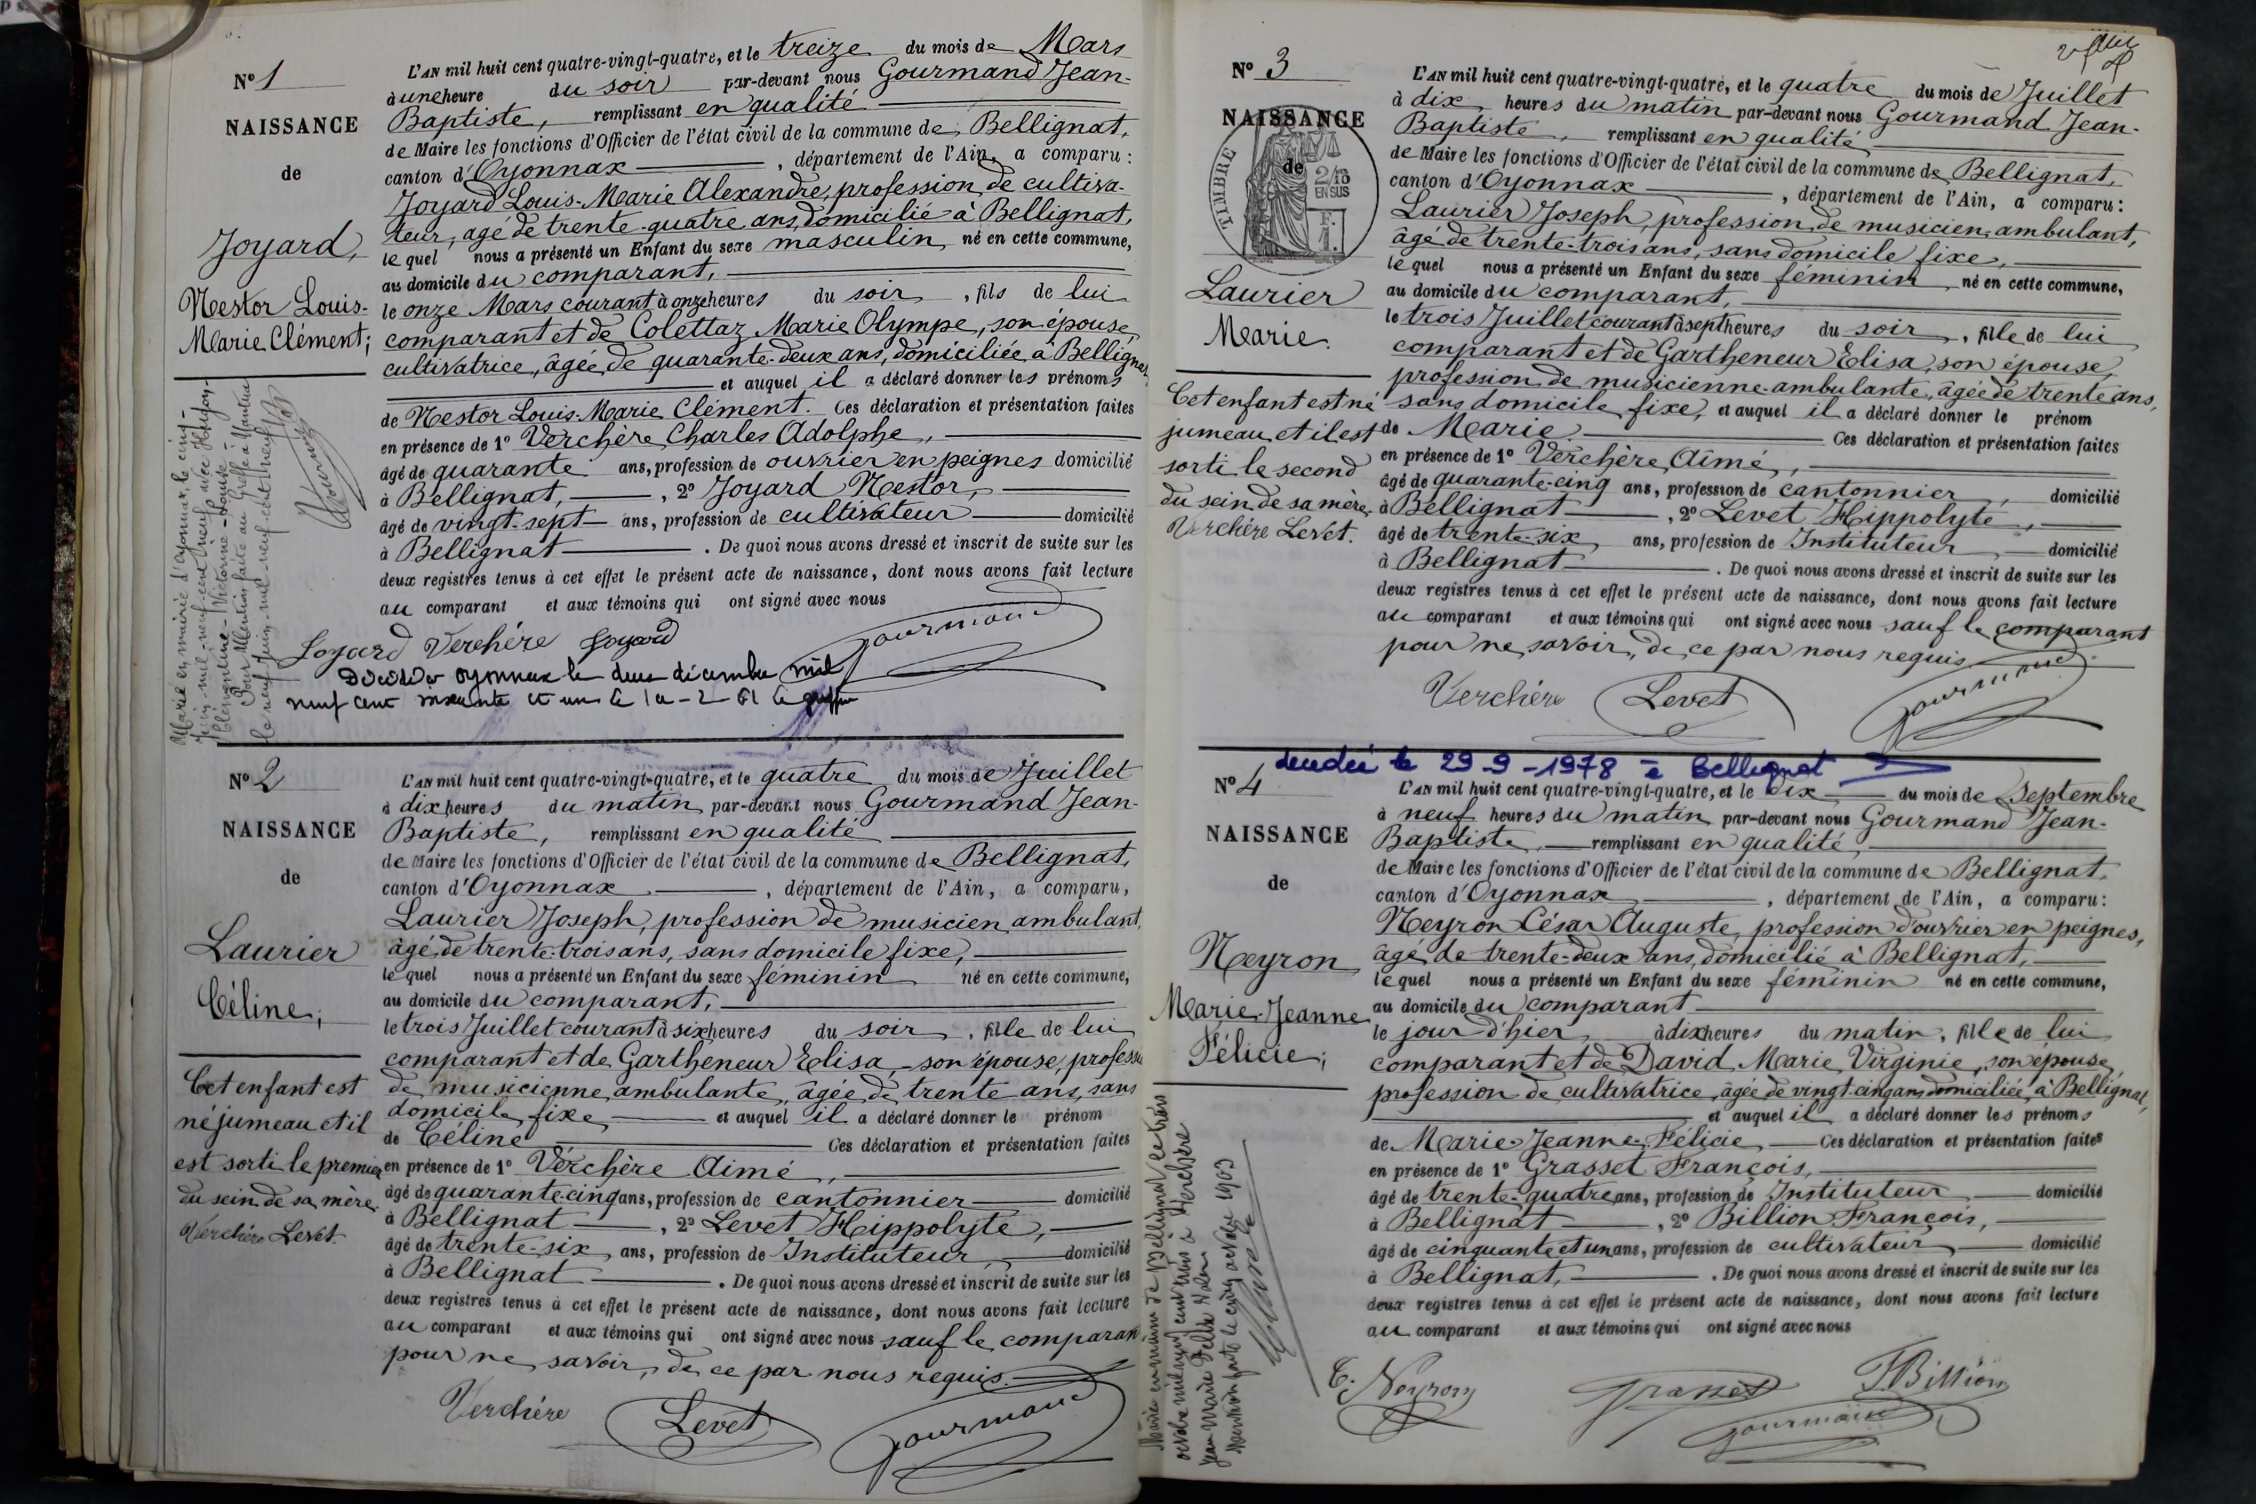 N° 1
NAISSANCE
de
Joyard,
Nestor Louis-
Marie Clément;
L'AN mil huit cent quatre-vingt-quatre, et le treize du mois de Mars
à une heure du soir par-devant nous Gourmand Jean-
Baptiste, remplissant en qualité
de Maire les fonctions d'Officier de l'état civil de la commune de Bellignat,
canton d'Oyonnax, département de l'Ain, a comparu :
Joyard Louis-Marie Alexandre, profession de cultiva-
teur, agé de trente-quatre ans, domicilié à Bellignat,
lequel nous a présenté un Enfant du sexe masculin, né en cette commune,
au domicile du comparant,
le onze Mars courant à onze heures du soir, fils de lui
comparant et de Colettaz Marie Olympe, son épouse,
cultivatrice, âgée de quarante-deux ans, domiciliée à Bellignat
et auquel il a déclaré donner les prénoms
de Nestor Louis-Marie Clément. Ces déclaration et présentation faites
en présence de 1° Verchère Charles Adolphe,
âgé de quarante ans, profession de ouvrier en peignes domicilié
à Bellignat, 2° Joyard Nestor,
âgé de vingt-sept ans, profession de cultivateur domicilié
à Bellignat. De quoi nous avons dressé et inscrit de suite sur les
deux registres tenus à cet effet le présent acte de naissance, dont nous avons fait lecture
au comparant et aux témoins qui ont signé avec nous
Joyard Verchère Joyard Gourmand
Décédé à Oyonnax le deux décembre mil
neuf cent soixante et un le
Marié en mairie d'Oyonnax, le cinq
juin mil-neuf-cent neuf, avec
Clémentine-Victorine-Louise
Pour Mention faite au Greffe à Nantua
le neuf juin mil-neuf-cent neuf
N° 2
NAISSANCE
de
Laurier
Céline;
Cet enfant est
né jumeau et il
est sorti le premier
du sein de sa mère.
Verchère Levet.
L'AN mil huit cent quatre-vingt-quatre, et le quatre du mois de Juillet
à dix heures du matin par-devant nous Gourmand Jean-
Baptiste, remplissant en qualité
de Maire les fonctions d'Officier de l'état civil de la commune de Bellignat,
canton d'Oyonnax, département de l'Ain, a comparu,
Laurier Joseph, profession de musicien ambulant,
âgé de trente-trois ans, sans domicile fixe,
lequel nous a présenté un Enfant du sexe féminin né en cette commune,
au domicile du comparant,
le trois Juillet courant à six heures du soir, fille de lui
comparant et de Gartheneur Elisa, son épouse, profession
de musicienne ambulante, âgée de trente ans, sans
domicile fixe, et auquel il a déclaré donner le prénom
de Céline Ces déclaration et présentation faites
en présence de 1° Verchère Aimé,
âgé de quarante-cinq ans, profession de cantonnier domicilié
à Bellignat, 2° Levet Hippolyte,
âgé de trente-six ans, profession de Instituteur, domicilié
à Bellignat. De quoi nous avons dressé et inscrit de suite sur les
deux registres tenus à cet effet le présent acte de naissance, dont nous avons fait lecture
au comparant et aux témoins qui ont signé avec nous sauf le comparant
pour ne savoir, de ce par nous requis.
Verchère Levet Gourmand
N° 3
NAISSANCE
de
TIMBRE
2/10
EN SUS
F.
1.
Laurier
Marie.
Cet enfant est né
jumeau et il est
sorti le second
du sein de sa mère,
Verchère Levet.
L'AN mil huit cent quatre-vingt-quatre, et le quatre du mois de Juillet
à dix heures du matin par-devant nous Gourmand Jean-
Baptiste, remplissant en qualité
de Maire les fonctions d'Officier de l'état civil de la commune de Bellignat,
canton d'Oyonnax, département de l'Ain, a comparu:
Laurier Joseph, profession de musicien ambulant,
âgé de trente-trois ans, sans domicile fixe,
lequel nous a présenté un Enfant du sexe féminin né en cette commune,
au domicile du comparant,
le trois Juillet courant à sept heures du soir, fille de lui
comparant et de Gartheneur Elisa, son épouse,
profession de musicienne ambulante, âgée de trente ans,
sans domicile fixe, et auquel il a déclaré donner le prénom
de Marie. Ces déclaration et présentation faites
en présence de 1° Verchère Aimé,
âgé de quarante-cinq ans, profession de cantonnier, domicilié
à Bellignat, 2° Levet Hippolyte,
âgé de trente-six ans, profession de Instituteur, domicilié
à Bellignat. De quoi nous avons dressé et inscrit de suite sur les
deux registres tenus à cet effet le présent acte de naissance, dont nous avons fait lecture
au comparant et aux témoins qui ont signé avec nous sauf le comparant
pour ne savoir, de ce par nous requis
Verchère Levet Gourmand
N° 4
NAISSANCE
de
Neyron
Marie-Jeanne
Félicie;
décédée le 29-9-1978 à Bellignat
L'AN mil huit cent quatre-vingt-quatre, et le dix du mois de Septembre
à neuf heures du matin par-devant nous Gourmand Jean-
Baptiste, remplissant en qualité
de Maire les fonctions d'Officier de l'état civil de la commune de Bellignat,
canton d'Oyonnax, département de l'Ain, a comparu:
Neyron César Auguste, profession d'ouvrier en peignes,
âgé de trente-deux ans, domicilié à Bellignat,
lequel nous a présenté un Enfant du sexe féminin né en cette commune,
au domicile du comparant
le jour d'hier, à dix heures du matin, fille de lui
comparant et de David Marie Virginie, son épouse,
profession de cultivatrice, âgée de vingt-cinq ans domiciliée à Bellignat,
et auquel il a déclaré donner les prénoms
de Marie-Jeanne-Félicie, Ces déclaration et présentation faites
en présence de 1° Grasset François,
âgé de trente-quatre ans, profession de Instituteur domicilié
à Bellignat, 2° Billion François,
âgé de cinquante et un ans, profession de cultivateur domicilié
à Bellignat,. De quoi nous avons dressé et inscrit de suite sur les
deux registres tenus à cet effet le présent acte de naissance, dont nous avons fait lecture
au comparant et aux témoins qui ont signé avec nous
C. Neyron Grasset F Billion
Gourmand
Mariée en mairie de Bellignat, le trois
octobre mil neuf cent trois à Verchère
Jean Marie
Mention faite le cinq octobre 1903